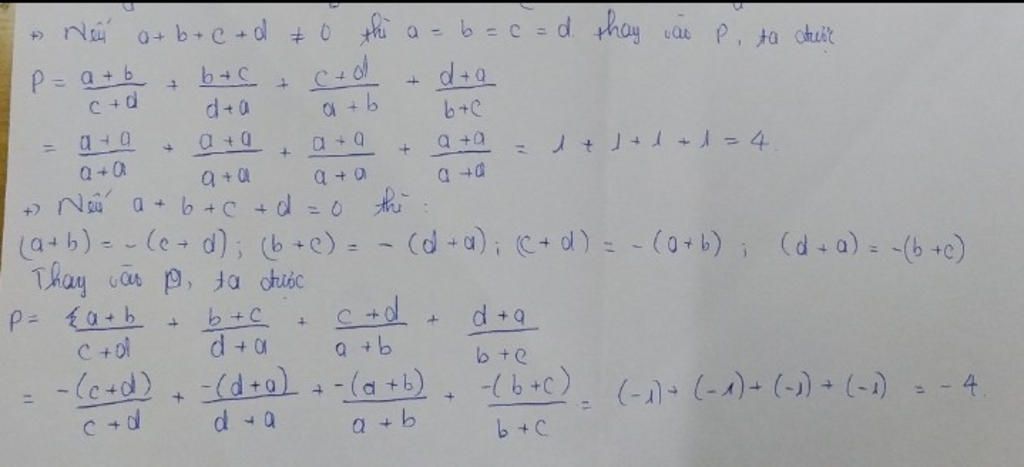 +) Nếu a + b + c + d ≠ 0 thì a = b = c = d. thay vào P, ta được
P = \frac{a+b}{c+d} + \frac{b+c}{d+a} + \frac{c+d}{a+b} + \frac{d+a}{b+c}
= \frac{a+a}{a+a} + \frac{a+a}{a+a} + \frac{a+a}{a+a} + \frac{a+a}{a+a} = 1 + 1 + 1 + 1 = 4.
+) Nếu a + b + c + d = 0 thì :
(a+b) = - (c + d) ; (b+c) = - (d+a) ; (c+d) = - (a+b) ; (d+a) = -(b+c)
Thay vào P, ta được
P = \frac{a+b}{c+d} + \frac{b+c}{d+a} + \frac{c+d}{a+b} + \frac{d+a}{b+c}
= \frac{-(c+d)}{c+d} + \frac{-(d+a)}{d+a} + \frac{-(a+b)}{a+b} + \frac{-(b+c)}{b+c} = (-1) + (-1) + (-1) + (-1) = - 4.